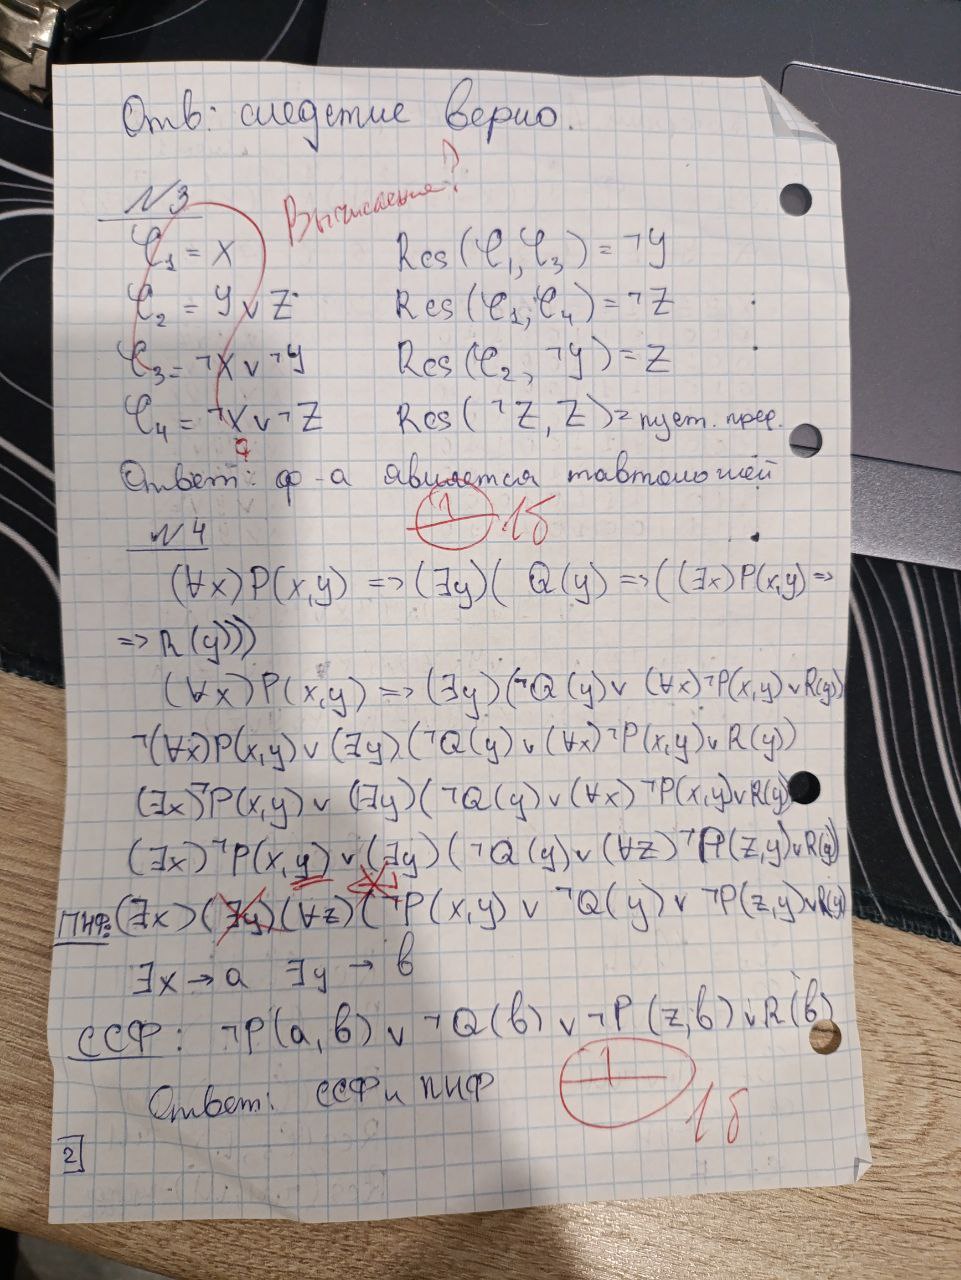 Отв: следствие верно.
N3
Вычисление?
φ₁ = X
Res(φ₁, φ₃) = ¬Y
φ₂ = Y ∨ Z
Res(φ₁, φ₄) = ¬Z
φ₃ = ¬X ∨ ¬Y
Res(φ₂, ¬Y) = Z
φ₄ = ¬X ∨ ¬Z
Res(¬Z, Z) = пуст. пред.
?
Ответ: ф-а является тавтологией
1 1б
N4
(∀x)P(x,y) => (∃y)( Q(y) => ((∃x)P(x,y) =>
=> R(y)))
(∀x)P(x,y) => (∃y)(¬Q(y) ∨ (∀x)¬P(x,y) ∨ R(y))
¬(∀x)P(x,y) ∨ (∃y)(¬Q(y) ∨ (∀x)¬P(x,y) ∨ R(y))
(∃x)¬P(x,y) ∨ (∃y)(¬Q(y) ∨ (∀x)¬P(x,y) ∨ R(y)
(∃x)¬P(x,y) ∨ (∃y)(¬Q(y) ∨ (∀z)¬P(z,y) ∨ R(y)
ПНФ: (∃x)(∃y)(∀z)(¬P(x,y) ∨ ¬Q(y) ∨ ¬P(z,y) ∨ R(y)
∃x → a ∃y → b
ССФ: ¬P(a,b) ∨ ¬Q(b) ∨ ¬P(z,b) ∨ R(b)
Ответ: ССФ и ПНФ
1 1б
2